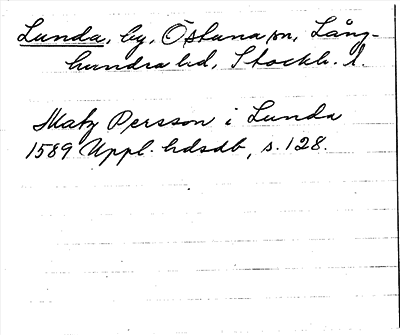 Lunda, by, Östuna sn, Lång-
hundra hd, Stockh. l.
Matz Persson i Lunda
1589 Uppl. hdsdb, s. 128.